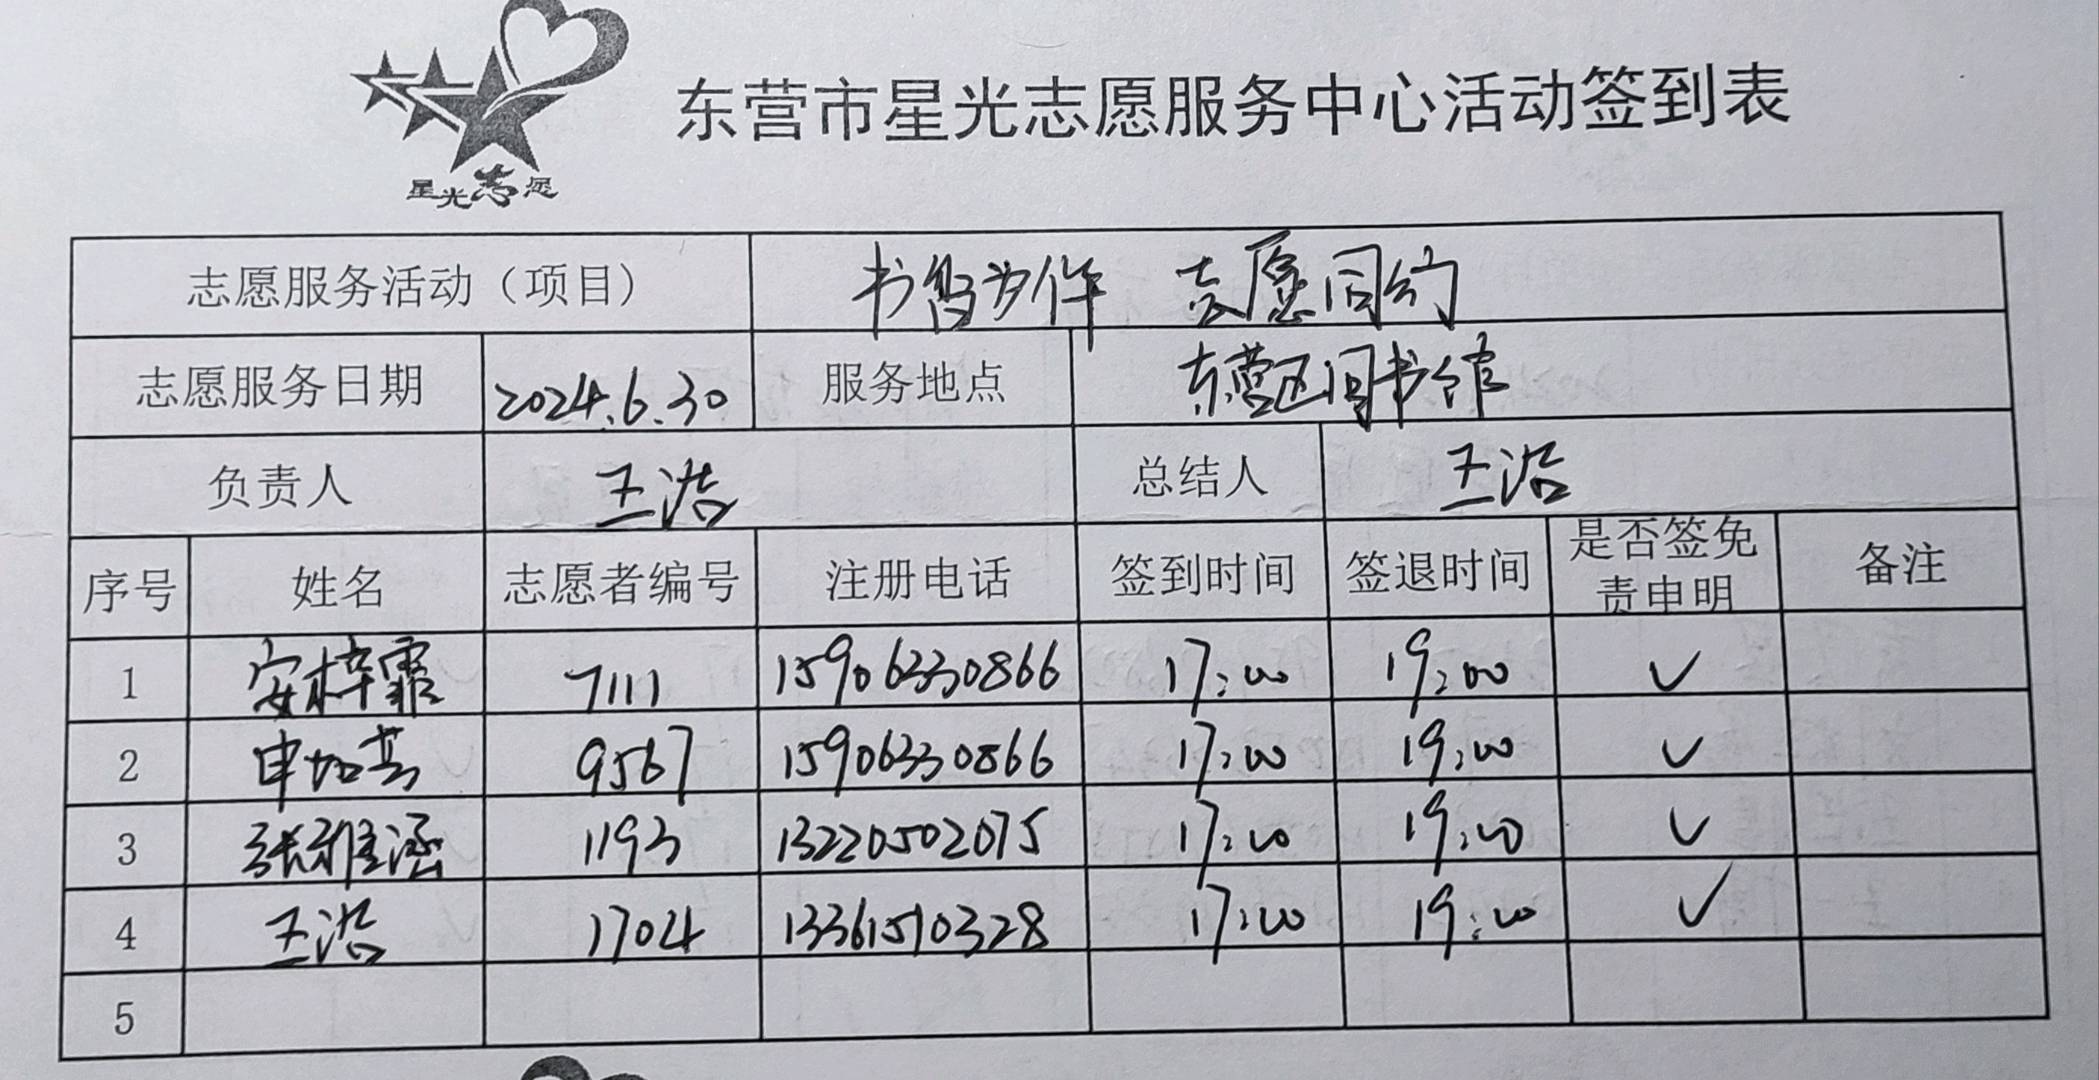 星光志愿
东营市星光志愿服务中心活动签到表
志愿服务活动（项目） 书香为伴 志愿同行
志愿服务日期 2024.6.30 服务地点 东营区图书馆
负责人 王浩 总结人 王浩
序号 姓名 志愿者编号 注册电话 签到时间 签退时间 是否签免责申明 备注
1 安梓霏 7111 15906330866 17:00 19:00 ✓
2 9567 15906330866 17:00 19:00 ✓
3 张雅涵 1193 13220502075 17:00 19:00 ✓
4 王浩 1704 13361510328 17:00 19:00 ✓
5